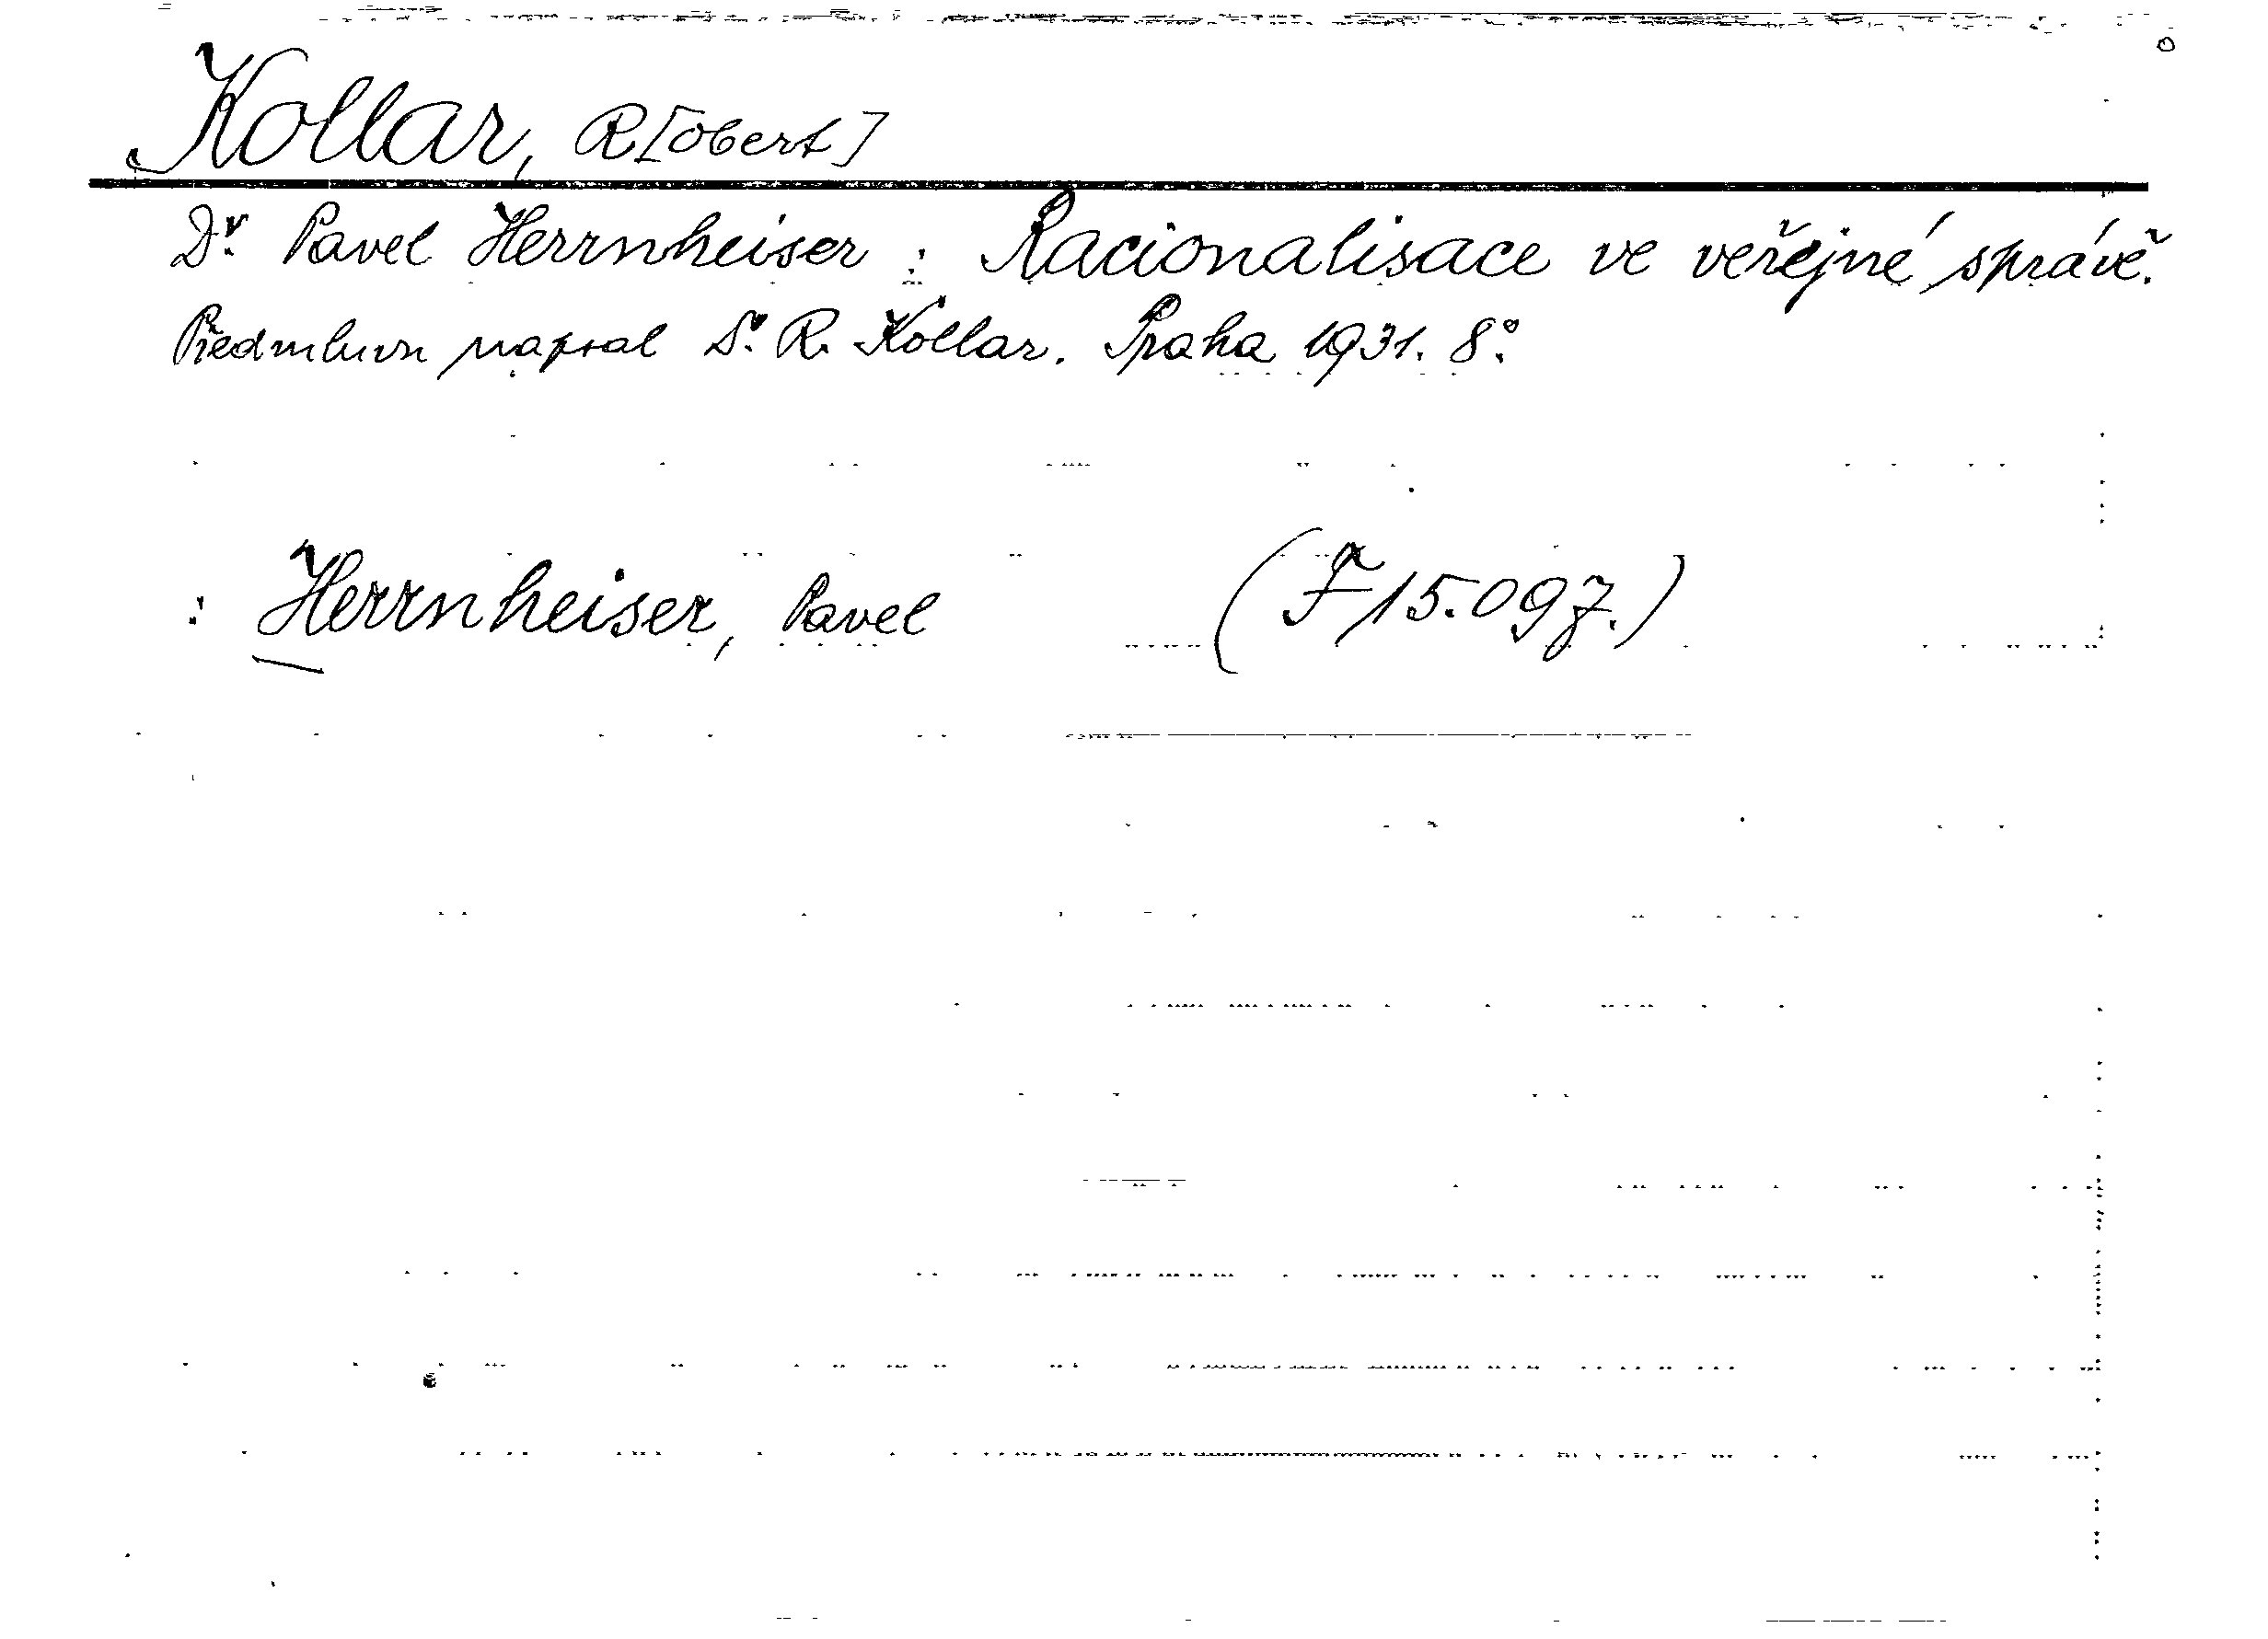 Kollar, R[obert]
Dr. Pavel Herrnheiser : Racionalisace ve veřejné správě.
Předmluvu napsal Dr. R. Kollar. Praha 1931. 8°.
: Herrnheiser, Pavel (F 15.097.)